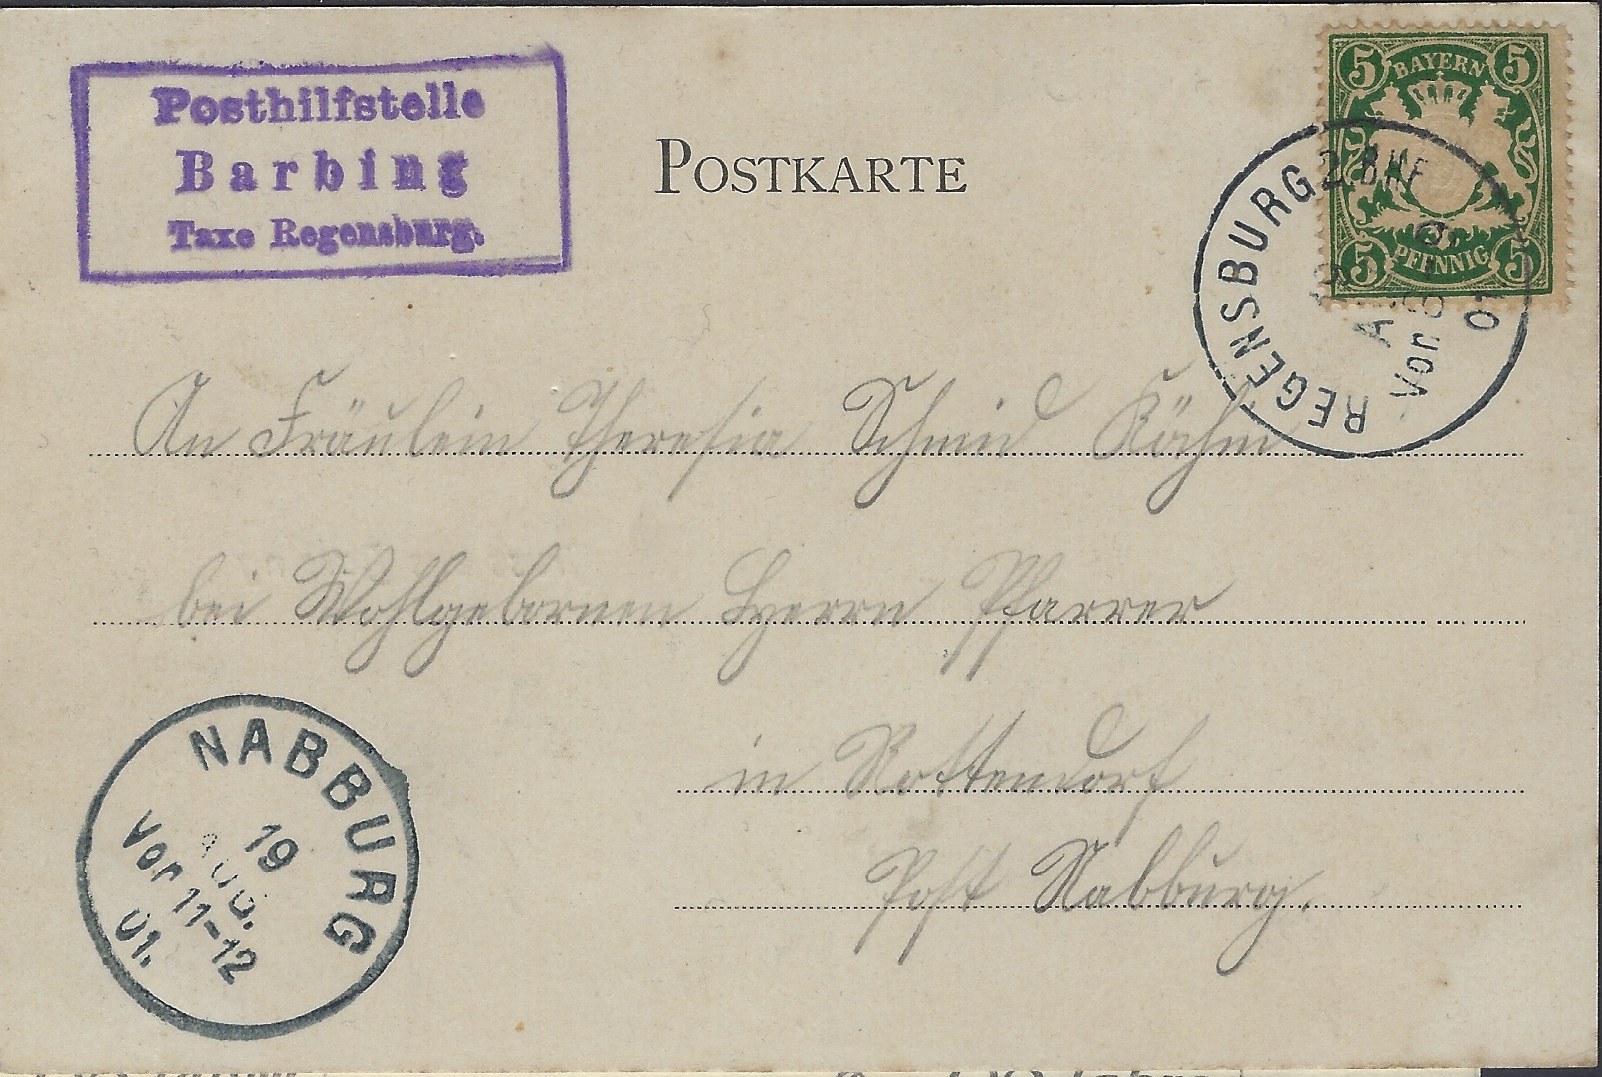 Posthilfstelle
Barbing
Taxe Regensburg.
POSTKARTE
5 BAYERN 5
5 PFENNIG 5
REGENSBURG 2 BHF
Vor 8
01
An Fräulein Theresia Schmid Köchin
bei Wohlgebornen Herrn Pfarrer
in Rottendorf
Post Nabburg.
NABBURG
19
AUG.
Vor 11-12
01.